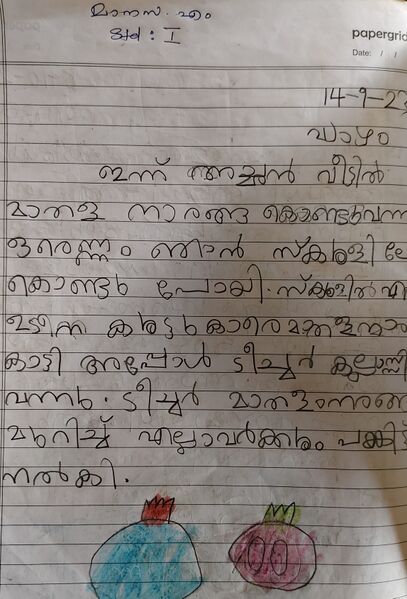 മാനസ. എം
std : I
papergrid
Date: / /
14-9-23
വ്യാഴം
ഇന്ന് അച്ഛൻ വീട്ടിൽ
മാതള നാരങ്ങ കൊണ്ടുവന്നു
ഒരെണ്ണം ഞാൻ സ്കൂളിലേ
കൊണ്ടു പോയി. സ്കൂളിൽ എ
കൂട്ടുകാരെ
കാട്ടി അപ്പോൾ ടീച്ചർ ക്ലാസ്സി
വന്നു. ടീച്ചർ മാതളനാരങ്ങ
മുറിച്ച് എല്ലാവർക്കും പങ്കിട്ട്
നൽകി.